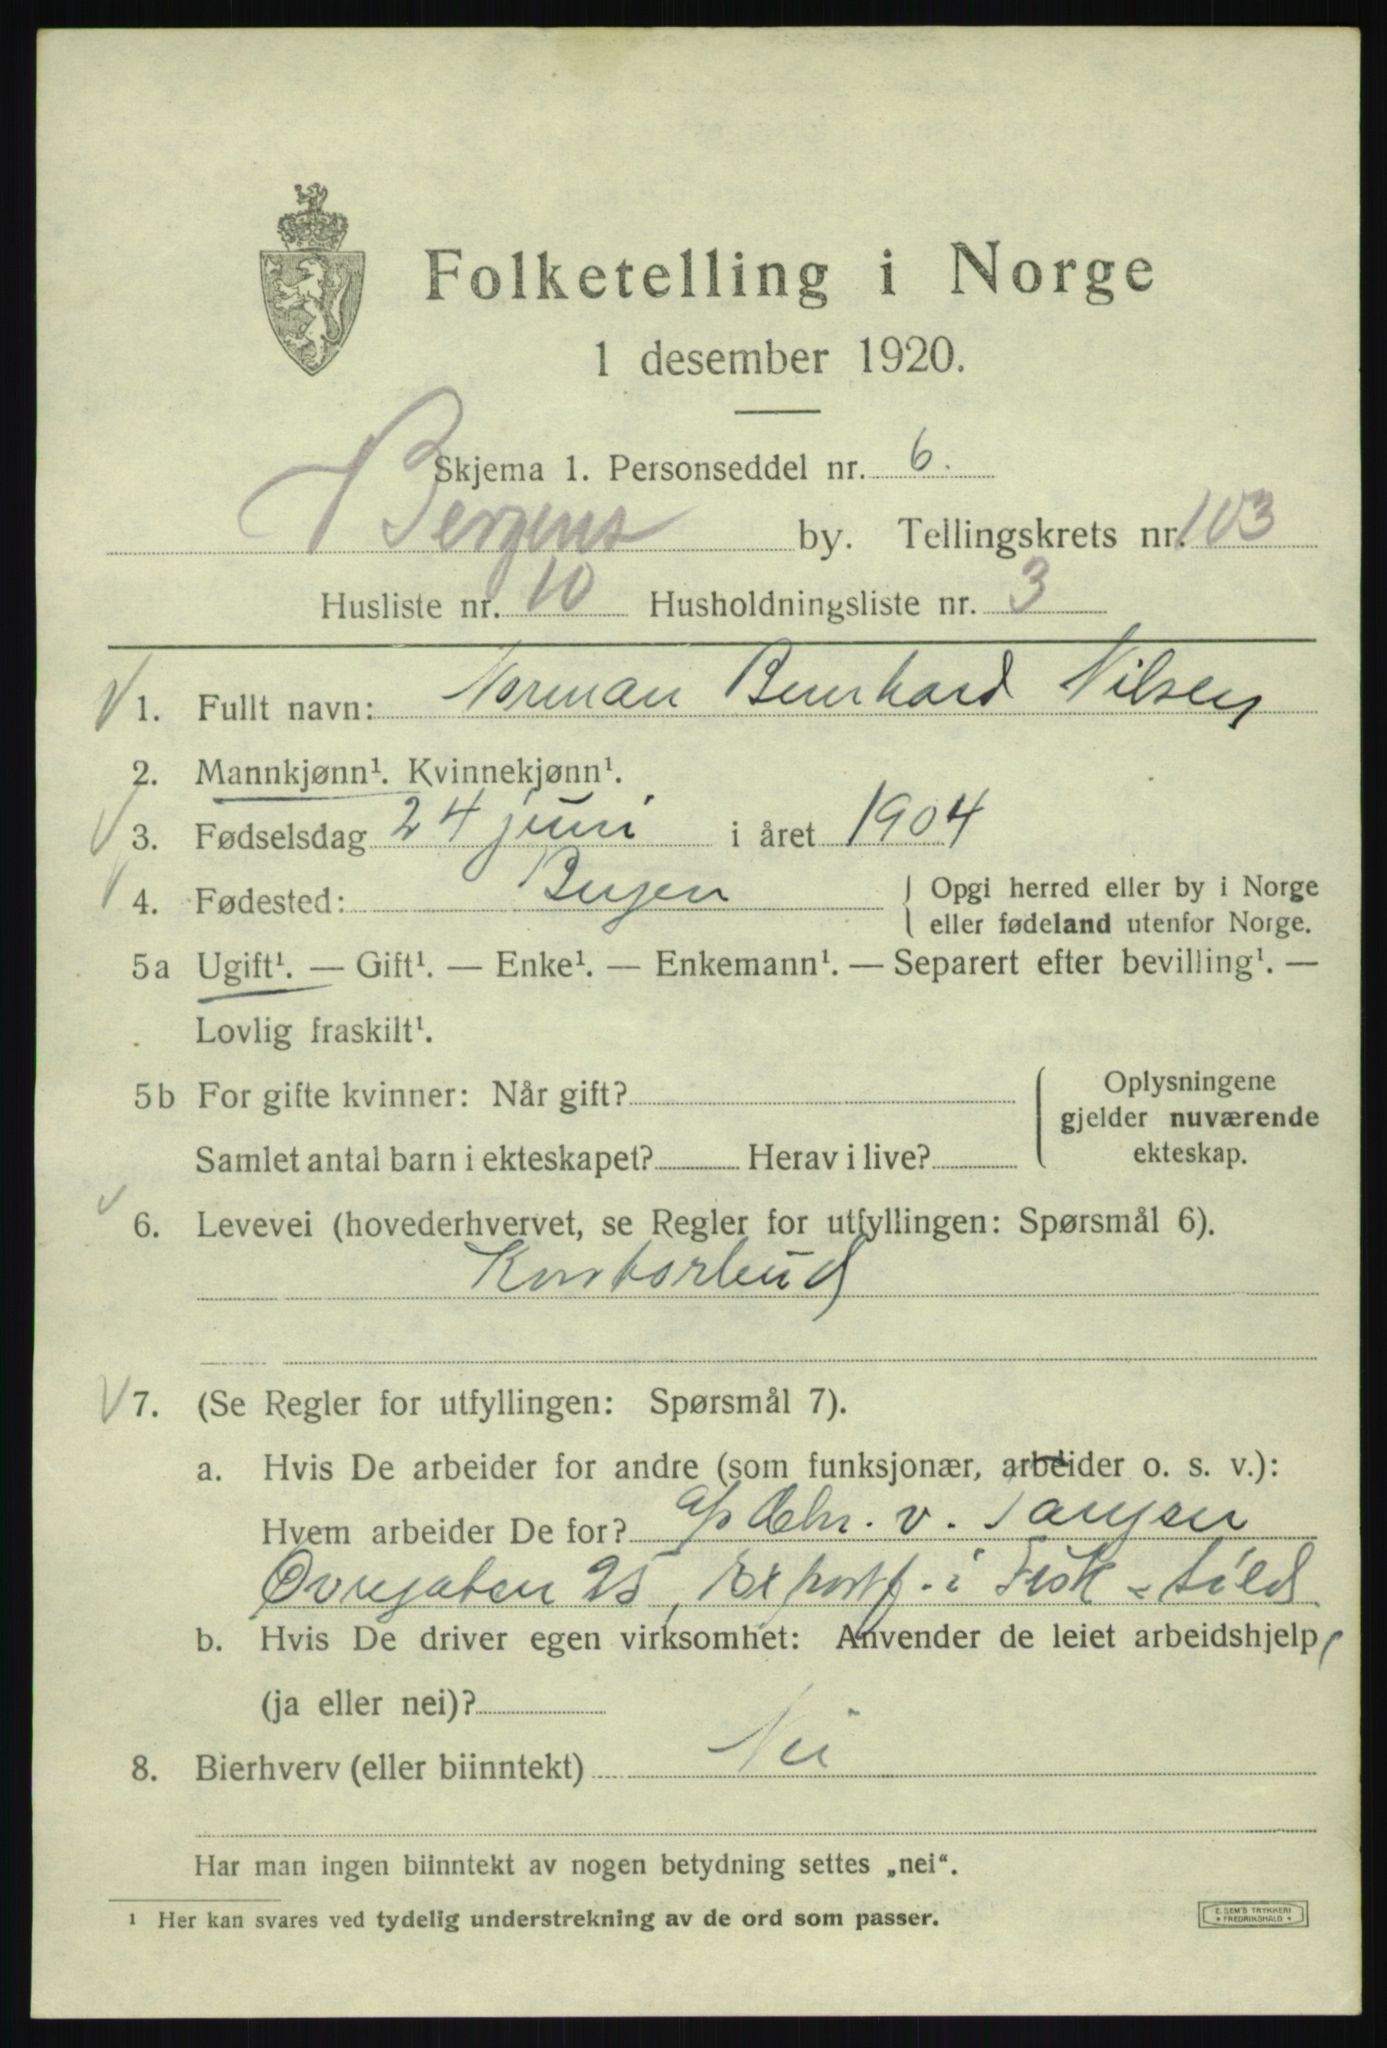 Folketelling i Norge
1 desember 1920.
Skjema 1. Personseddel nr. 6.
Bergens by. Tellingskrets nr. 103
Husliste nr. 10 Husholdningsliste nr. 3
1. Fullt navn: Norman Bernhard Nilsen
2. Mannkjønn¹. Kvinnekjønn¹.
3. Fødselsdag 24 juni i året 1904
4. Fødested: Bergen { Opgi herred eller by i Norge
eller fødeland utenfor Norge.
5a Ugift¹. — Gift¹. — Enke¹. — Enkemann¹. — Separert efter bevilling¹. —
Lovlig fraskilt¹.
5b For gifte kvinner: Når gift?
Samlet antal barn i ekteskapet? Herav i live?
Oplysningene
gjelder nuværende
ekteskap.
6. Levevei (hovederhvervet, se Regler for utfyllingen: Spørsmål 6).
Kontorbud
7. (Se Regler for utfyllingen: Spørsmål 7).
a. Hvis De arbeider for andre (som funksjonær, arbeider o. s. v.):
Hvem arbeider De for? a/s Chr. v. Tangen
Øvregaten 25, Exportf. i Fisk - sild
b. Hvis De driver egen virksomhet: Anvender de leiet arbeidshjelp
(ja eller nei)?
8. Bierhverv (eller biinntekt) Nei
Har man ingen biinntekt av nogen betydning settes „nei“.
¹ Her kan svares ved tydelig understrekning av de ord som passer.
E. SEM'S TRYKKERI
* FREDRIKSHALD *